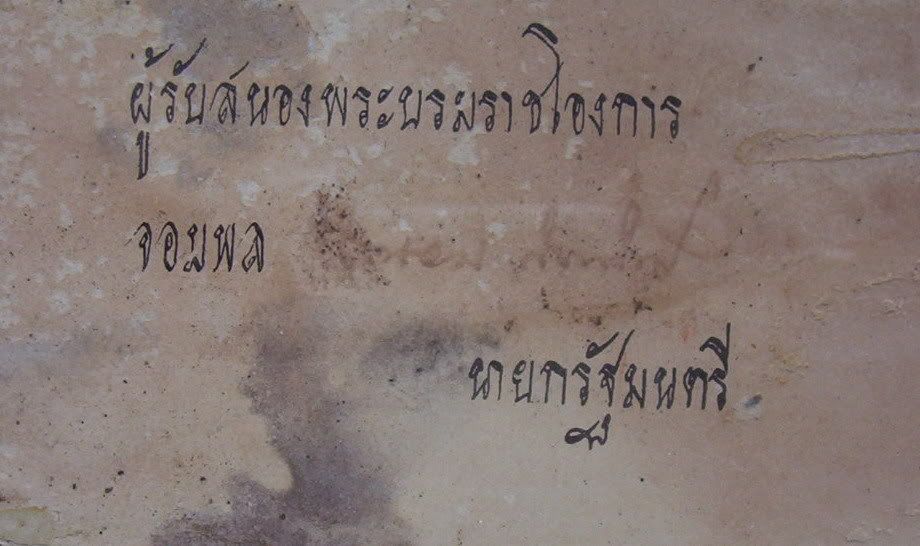 ผู้รับสนองพระบรมราชโองการ
จอมพล
นายกรัฐมนตรี